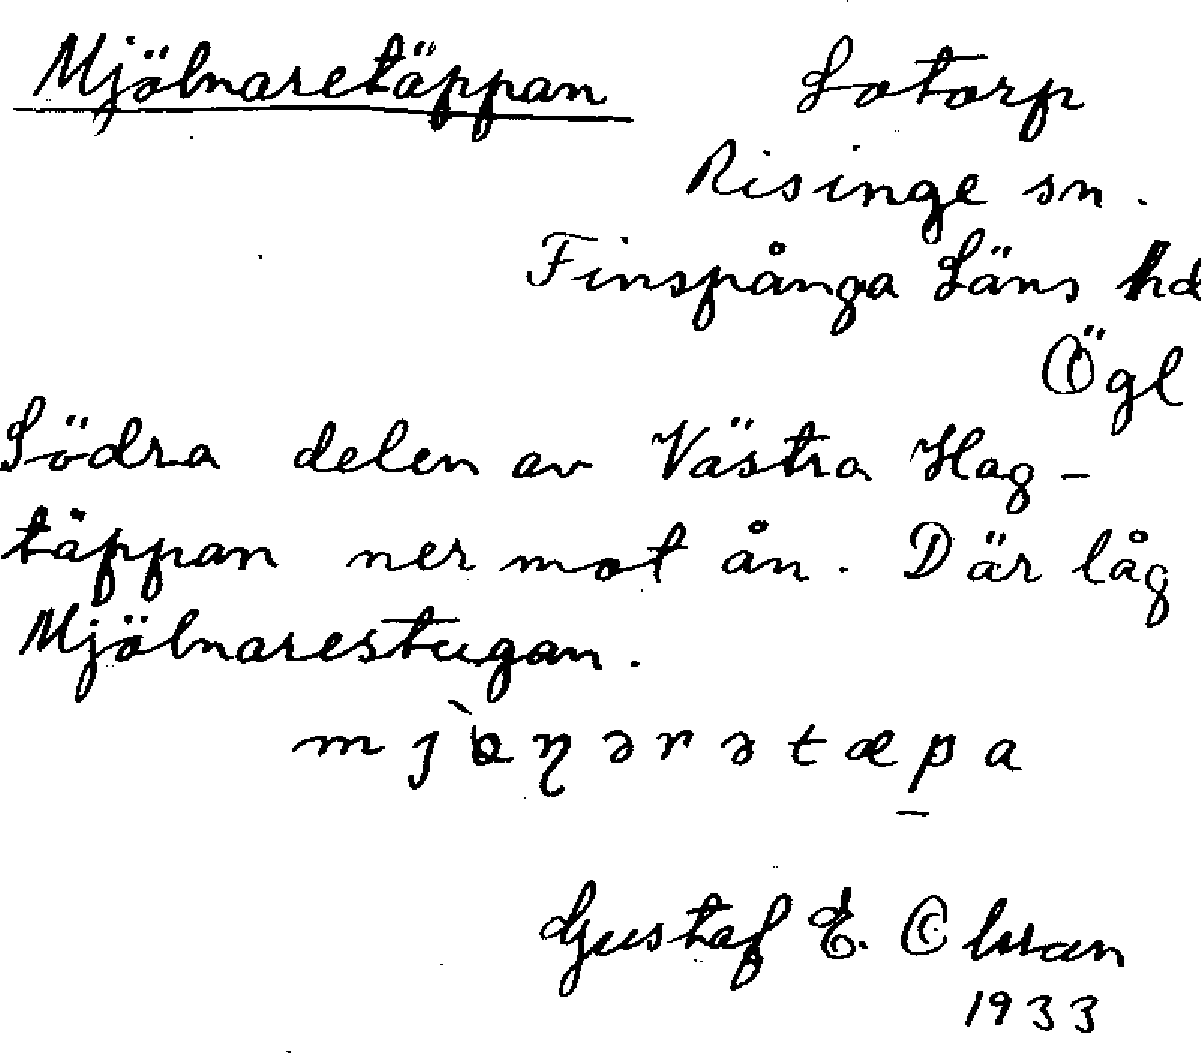 Mjölnaretäppan Lotorp
Risinge sn.
Finspånga Läns hd
Ögl
Södra delen av Västra Hag-
täppan ner mot ån. Där låg
Mjölnarestugan.
Gustaf E. Olsson
1933